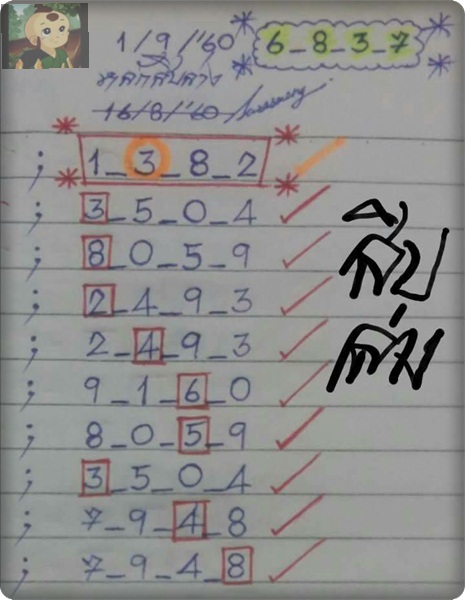 1/9/'60
6-8-3-7
หลักสิบล่าง
16/8/'60
; 1_3_8_2
; 3_5_0_4
; 8_0_5_9
; 2_4_9_3
; 2_4_9_3
; 9_1_6_0
; 8_0_5_9
; 3_5_0_4
; 7_9_4_8
; 7_9_4_8
สิบ
ล่าง